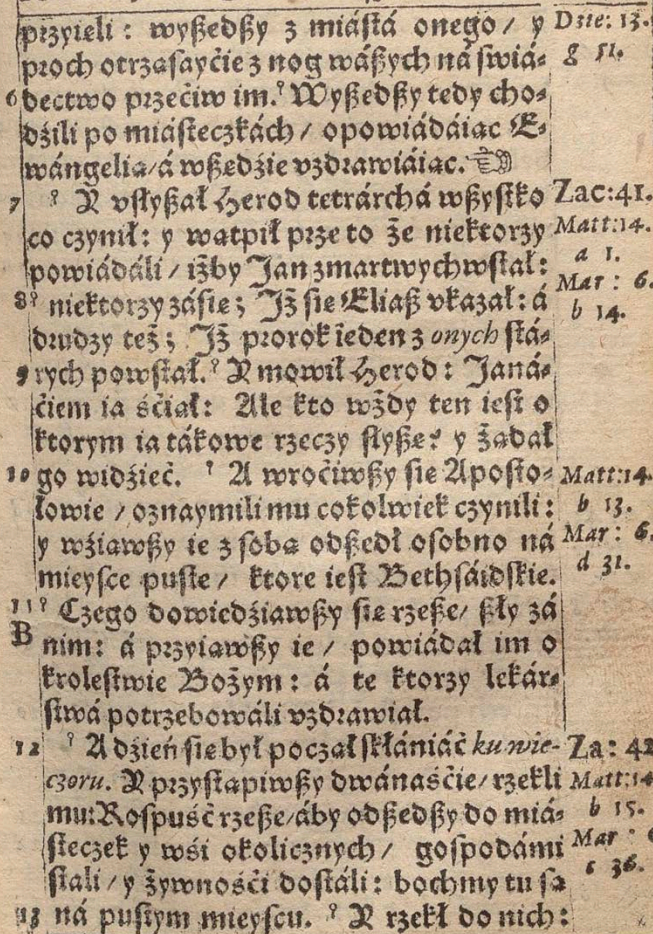 przyieli : wyßedßy z miástá onego / y
proch otrząsayćie z nog wáßych ná świá⸗
6 dectwo przećiw im. Wyßedßy tedy cho⸗
dźili po miásteczkách / opowiádáiąc E⸗
wángelią / á wßędźie vzdrawiáiąc. ☜
7 Y vsłyßał Herod tetrárchá wßystko
co czynił : y wątpił prze to że niektorzy
powiádáli / iżby Jan zmartwychwstał :
8 niektorzy zásię ; Jż się Eliaß vkazał : á
drudzy też ; Jż prorok ieden z onych stá⸗
9 rych powstał. Y mowił Herod : Janá⸗
ćiem ia śćiął : Ale kto wżdy ten iest o
ktorym ia tákowe rzeczy słyßę ? y żądał
10 go widźieć. A wroćiwßy się Aposto⸗
łowie / oznaymili mu cokolwiek czynili :
y wźiąwßy ie z sobą odßedł osobno ná
mieysce puste / ktore iest Bethsáidskie.
11 Czego dowiedźiawßy się rzeße / ßły zá
B nim : á przyiąwßy ie / powiádał im o
krolestwie Bożym : á te ktorzy lekár⸗
stwá potrzebowáli vzdrawiał.
12 A dźień się był począł skłániáć ku wie-
czoru. Y przystąpiwßy dwánaśćie / rzekli
mu: Rospuść rzeße / áby odßedßy do miá⸗
steczek y wśi okolicznych / gospodámi
stáli / y żywnośći dostáli : bochmy tu są
13 ná pustym mieyscu. Y rzekł do nich :
Dzie: 13.
g 51.
Zac: 41.
Matt: 14.
a 1.
Mar : 6.
b 14.
Matt: 14.
b 13.
Mar : 6.
d 31.
Za: 42
Matt: 14
b 15.
Mar :
c 36.